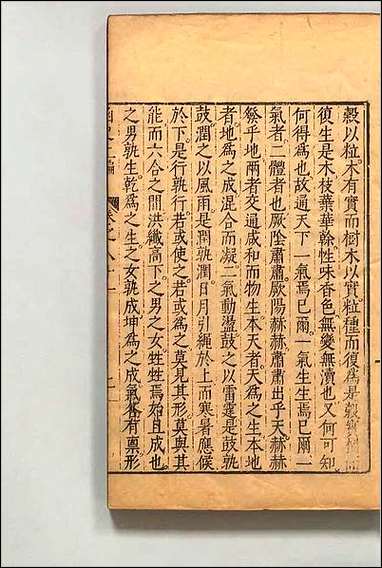 穀以粒木有實而樹木以實粒種而復為是穀實
復生是木枝葉華幹性味香色無變無瀆也又何可知
何得為也故通天下一氣焉已爾一氣生生焉已爾一
氣者二體者也厥陰肅肅厥陽赫赫肅肅出乎天赫赫
發乎地兩者交通咸和而物生本天者天為之生本地
者地為之成混合而凝二氣動盪鼓之以雷霆是鼓孰
鼓潤之以風雨是潤孰潤日月引繩於上而寒暑應候
於下是行孰行若或使之若或為之莫見其形莫與其
能而六合之間洪纖高下之男之女牲牲焉始且成也
之男孰生乾為之生之女孰成坤為之成氣 有稟形